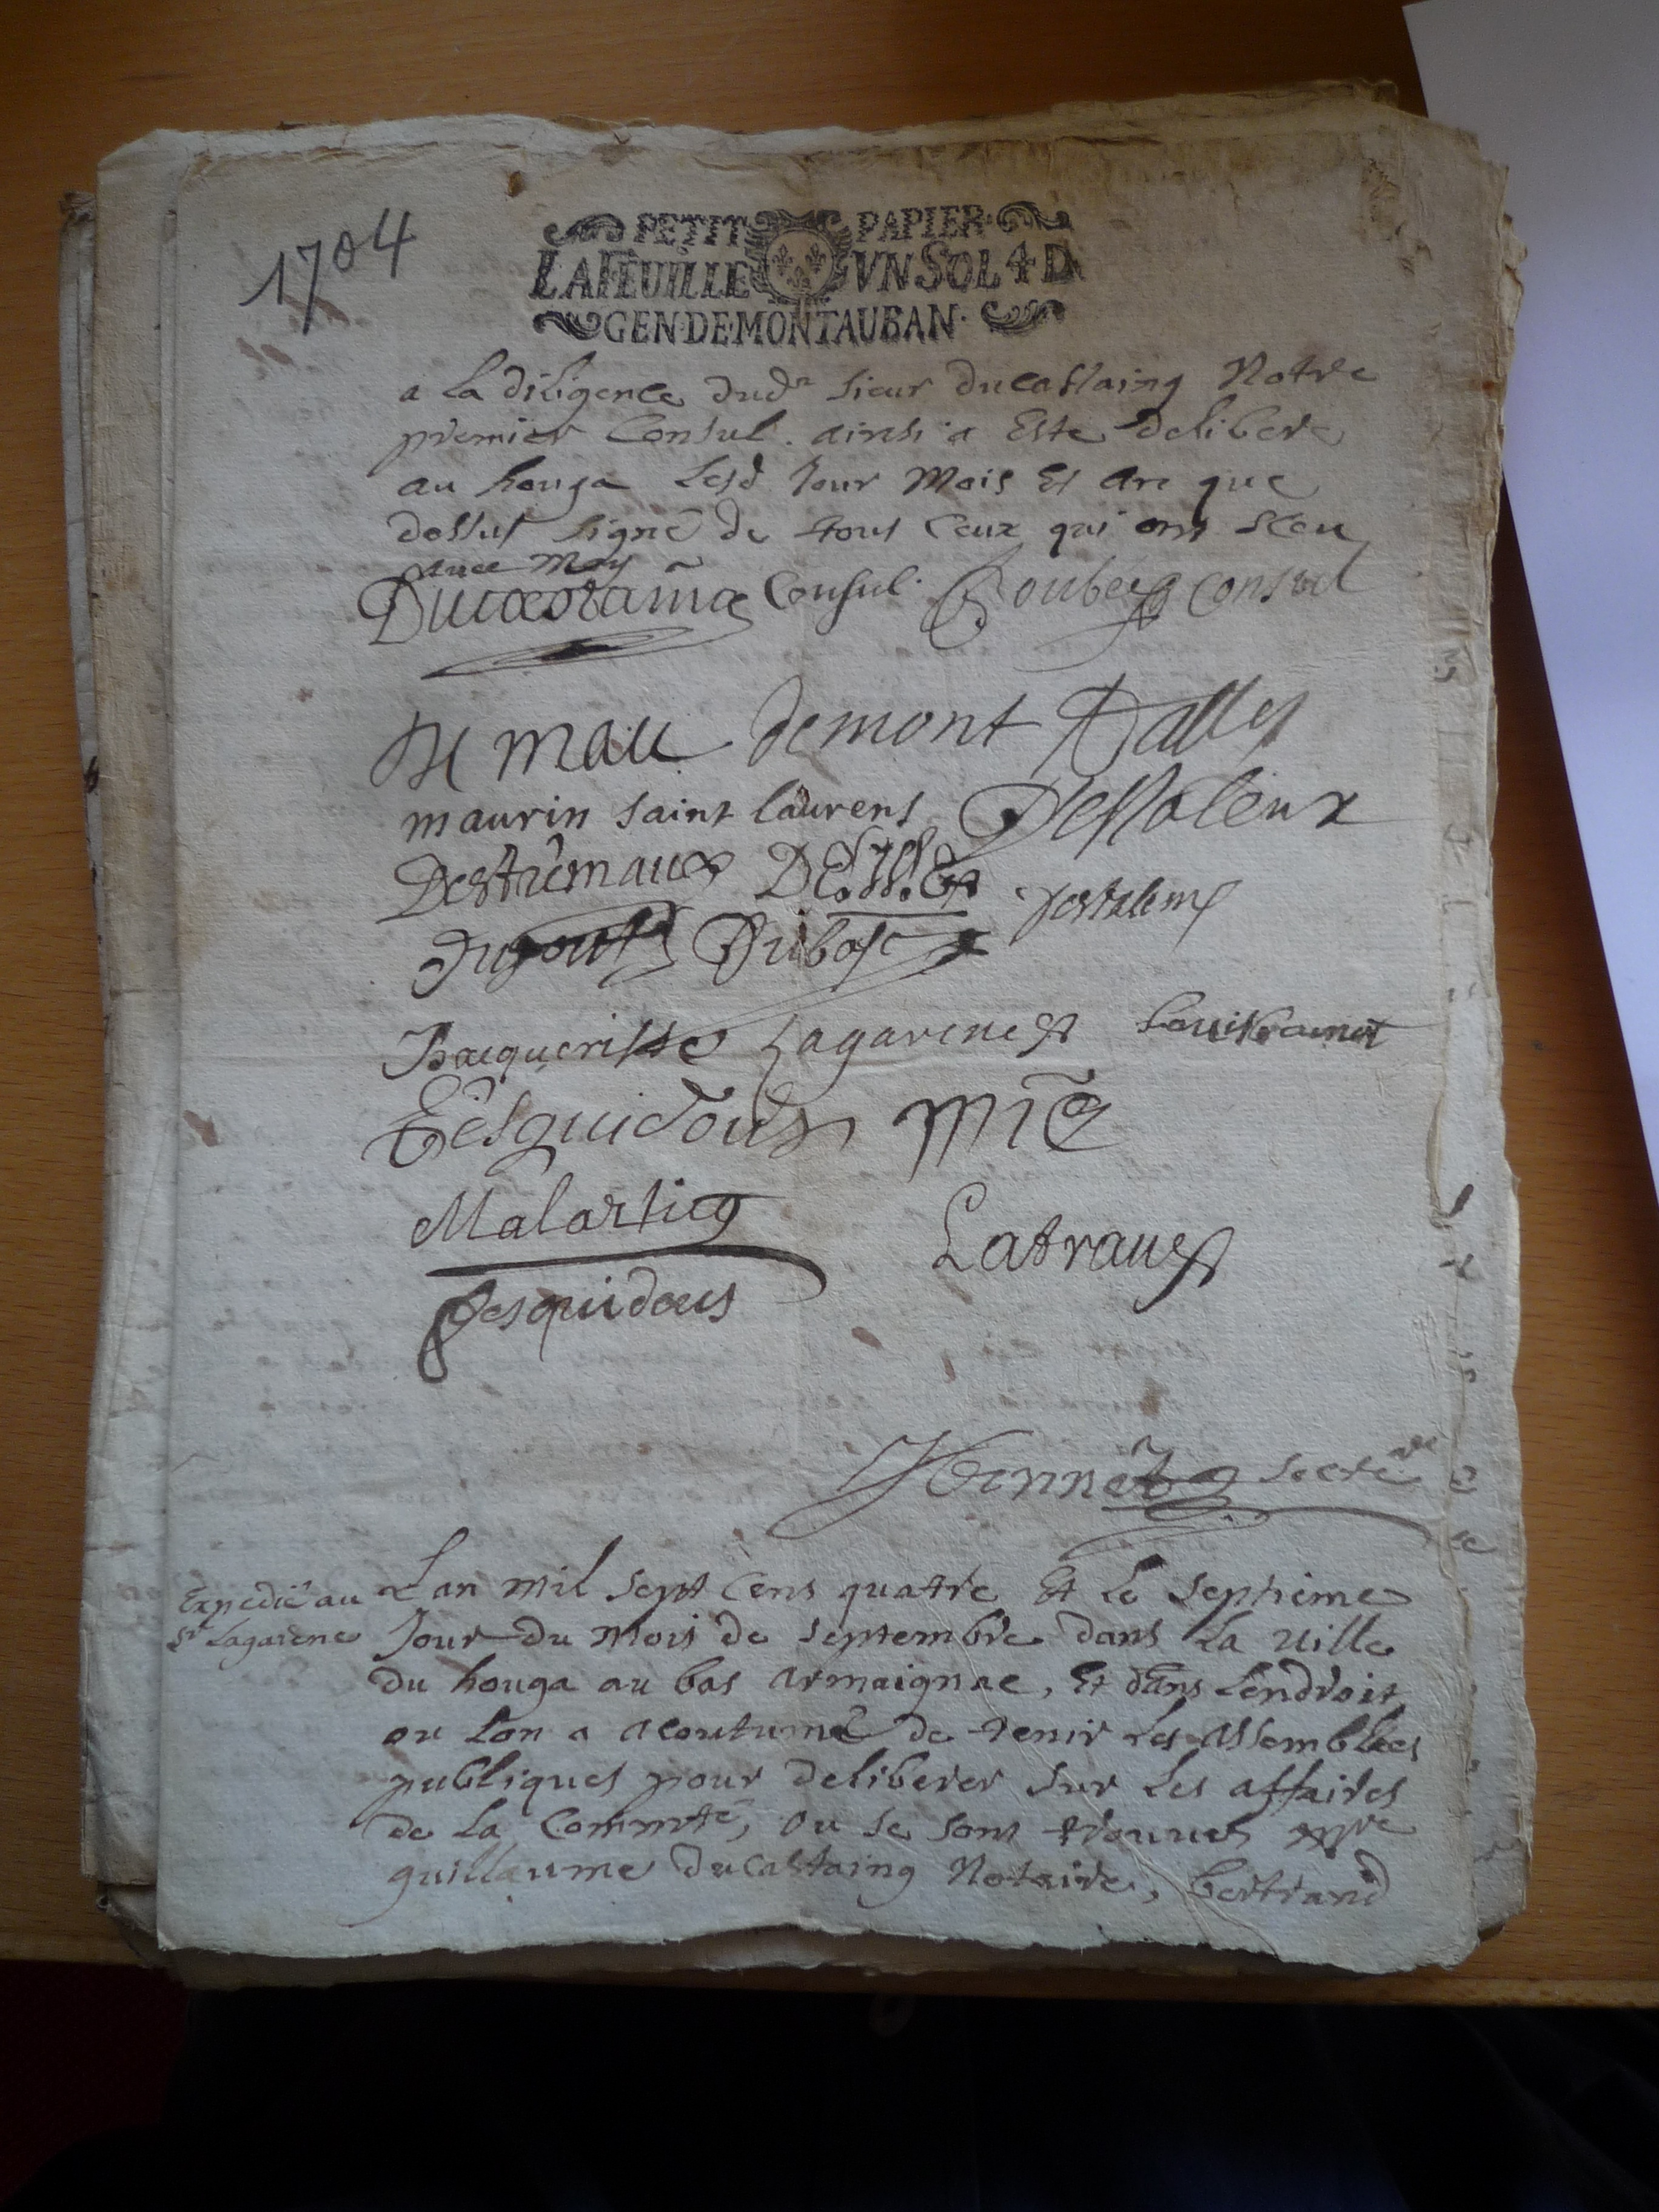 1704
PETIT PAPIER
LA FEUILLE VN SOL 4 D
GEN DE MONTAUBAN
a La diligence dud sieur ducastaing Notre
premier Consul. ainsi a Este delibere
au houga Lesd Jour Mois Et An que
dessus signé de tous Ceux qui ont sceu
avec Moy
Ducastaing Consul. consul
demont
maurin saint laurens
Destremaux
Dubosc
Lagarene
Desquidous
Malartic Latrau
desquidous
secre
Expedié au
Sr Lagarene
Lan mil sept Cens quatre Et Le septieme
Jour du Mois de septembre dans La ville
du houga au bas armaignac, Et dans Lendroit
ou Lon a acoutumé de tenir Les Assemblées
publiques pour deliberer sur Les affaires
de La Commté, ou se sont trouves
guillaume ducastaing Notaire, bertrand